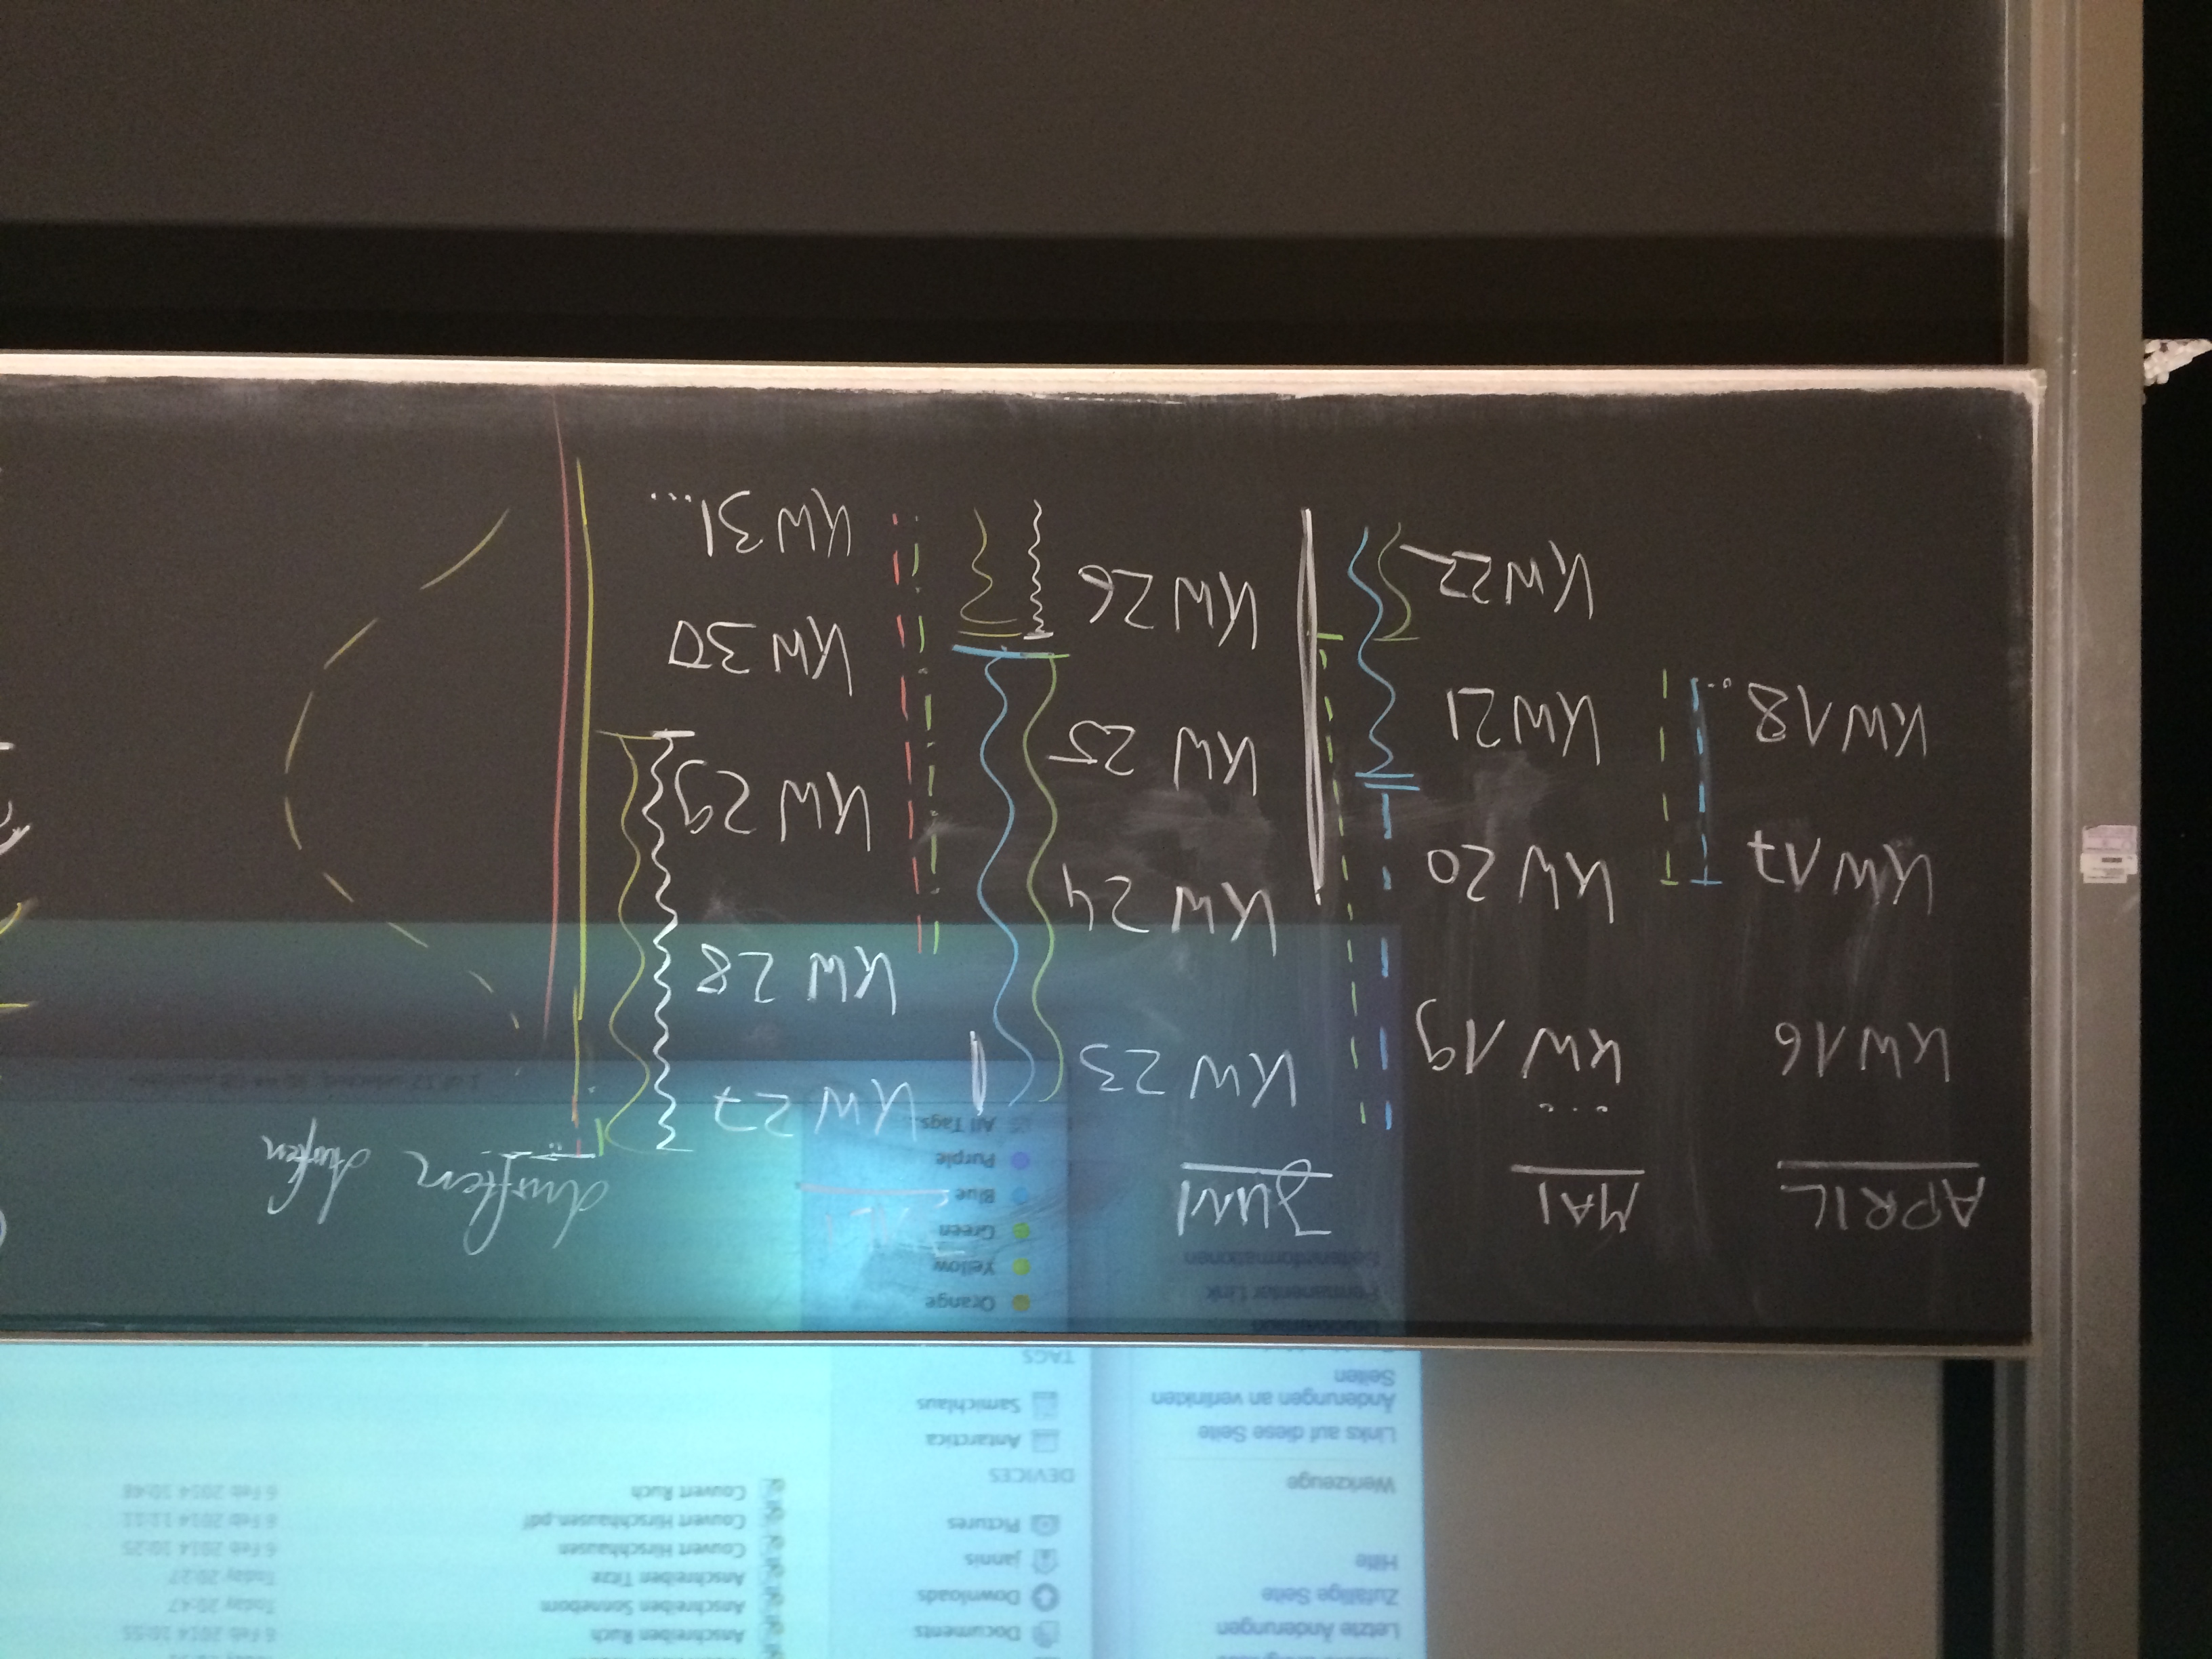 Letzte Änderungen
Zufällige Seite
Hilfe
Werkzeuge
Links auf diese Seite
Änderungen an verlinkten
Seiten
Permanenter Link
Seiteninformationen
Documents
Downloads
jannis
Pictures
DEVICES
Antarctica
Samichlaus
TAGS
Orange
Yellow
Green
Blue
Purple
All Tags...
Anschreiben Ruch 6 Feb 2014 10:55
Anschreiben Sonneborn Today 20:47
Anschreiben Titze Today 20:27
Couvert Hirschhausen 6 Feb 2014 10:25
Couvert Hirschhausen.pdf 6 Feb 2014 11:11
Couvert Ruch 6 Feb 2014 10:48
APRIL
KW16
KW17
KW18...
MAI
...
KW 19
KW 20
KW21
KW22
JUNI
KW 23
KW 24
KW 25
KW 26
KW 27
KW 28
KW 29
KW 30
KW 31...